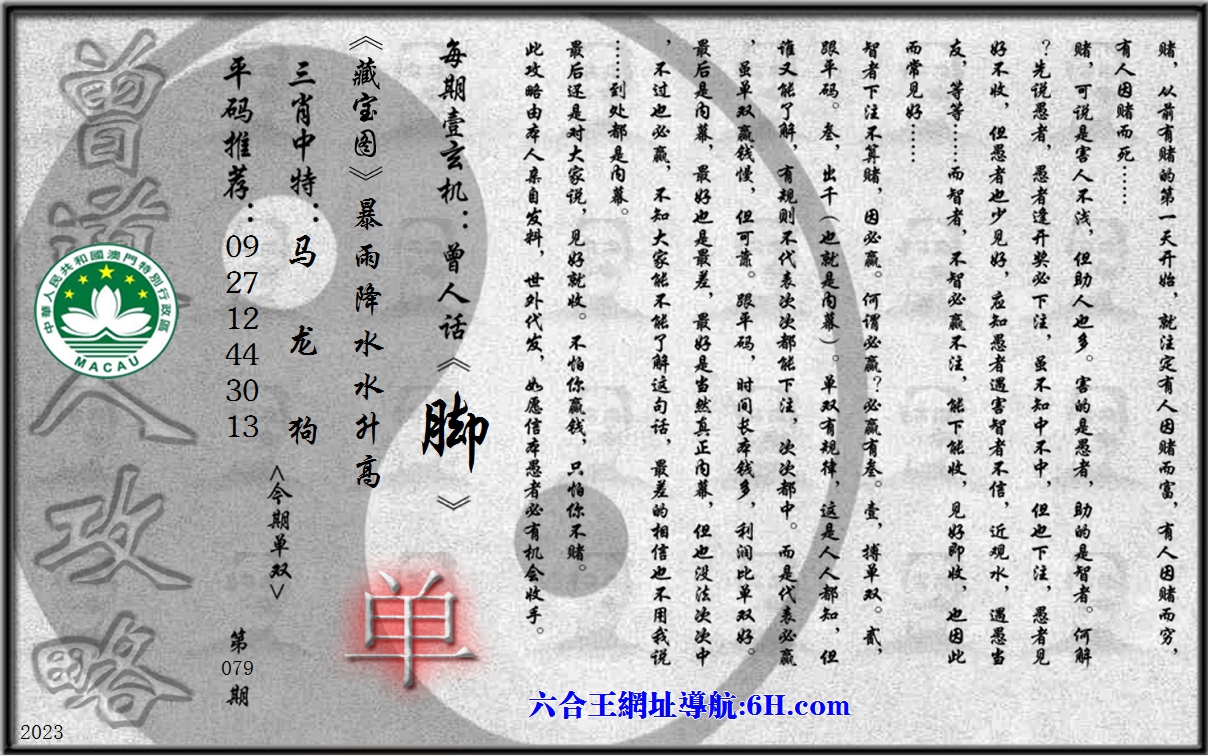 赌，从前有赌的第一天开始，就注定有人因赌而富，有人因赌而穷，
有人因赌而死……
赌，可说是害人不浅，但助人也多。害的是愚者，助的是智者。何解
？先说愚者，愚者逢开奖必下注，虽不知中不中，但也下注，愚者见
好不收，但愚者也少见好，应知愚者遇害智者不信，近观水，遇愚当
友，等等……而智者，不智必赢不注，能下能收，见好即收，也因此
而常见好……
智者下注不算赌，因必赢。何谓必赢？必赢有叁。壹，搏单双。贰，
跟平码。叁，出千（也就是内幕）。单双有规律，这是人人都知，但
谁又能了解，有规则不代表次次都能下注，次次都中。而是代表必赢
，虽单双赢钱慢，但可靠。跟平码，时间长本钱多，利润比单双好。
最后是内幕，最好也是最差，最好是当然真正内幕，但也没法次次中
，不过也必赢，不知大家能不能了解这句话，最差的相信也不用我说
……到处都是内幕。
最后还是对大家说，见好就收。不怕你赢钱，只怕你不赌。
此攻略由本人亲自发料，世外代发，如愿信本愚者必有机会收手。
每期壹玄机：曾人话《脚》
《藏宝图》暴雨降水水升高
单
三肖中特：马 龙 狗
<今期单双>
平码推荐：09 27 12 44 30 13
第079期
曾道人攻略
中華人民共和國澳門特別行政區
MACAU
六合王網址導航:6H.com
2023